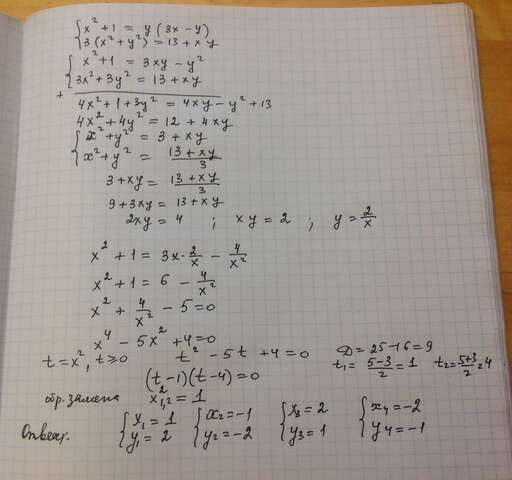 {x² + 1 = y(3x - y)
{3(x² + y²) = 13 + xy
{x² + 1 = 3xy - y²
{3x² + 3y² = 13 + xy
+
4x² + 1 + 3y² = 4xy - y² + 13
4x² + 4y² = 12 + 4xy
{x² + y² = 3 + xy
{x² + y² = (13 + xy)/3
3 + xy = (13 + xy)/3
9 + 3xy = 13 + xy
2xy = 4 ; xy = 2 ; y = 2/x
x² + 1 = 3x · 2/x - 4/x²
x² + 1 = 6 - 4/x²
x² + 4/x² - 5 = 0
x⁴ - 5x² + 4 = 0
t = x², t ≥ 0 t² - 5t + 4 = 0 D = 25 - 16 = 9
t₁ = (5-3)/2 = 1 t₂ = (5+3)/2 = 4
(t-1)(t-4) = 0
обр. замена x²₁,₂ = 1
Ответ: {x₁ = 1 {x₂ = -1 {x₃ = 2 {x₄ = -2
{y₁ = 2 {y₂ = -2 {y₃ = 1 {y₄ = -1